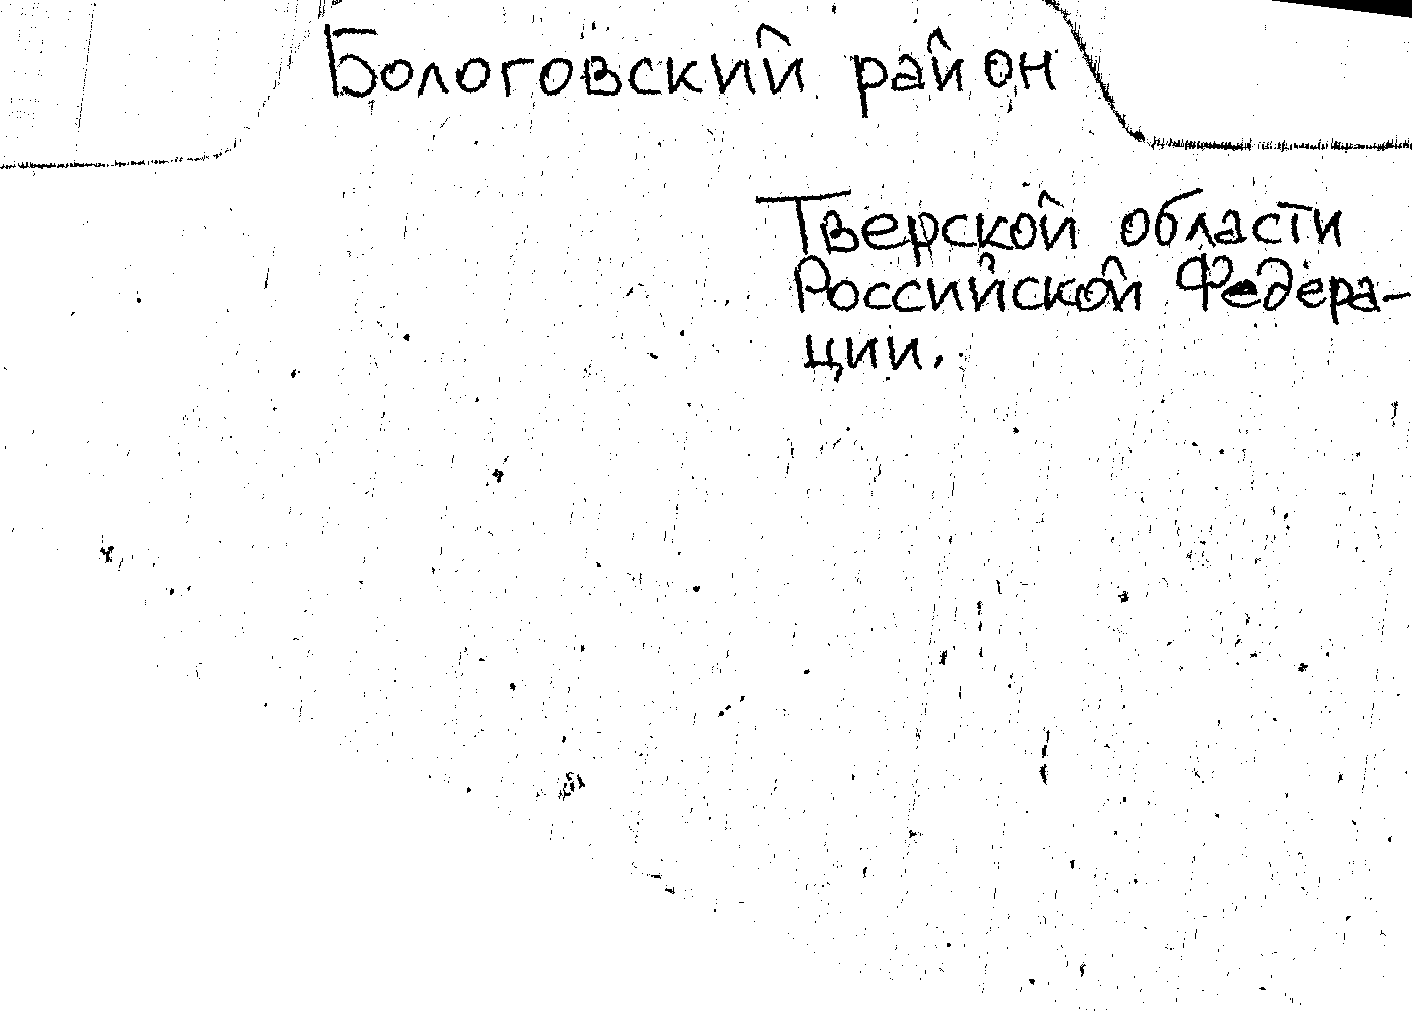 Бологовский район
Тверской области
Российской Федера-
ции.